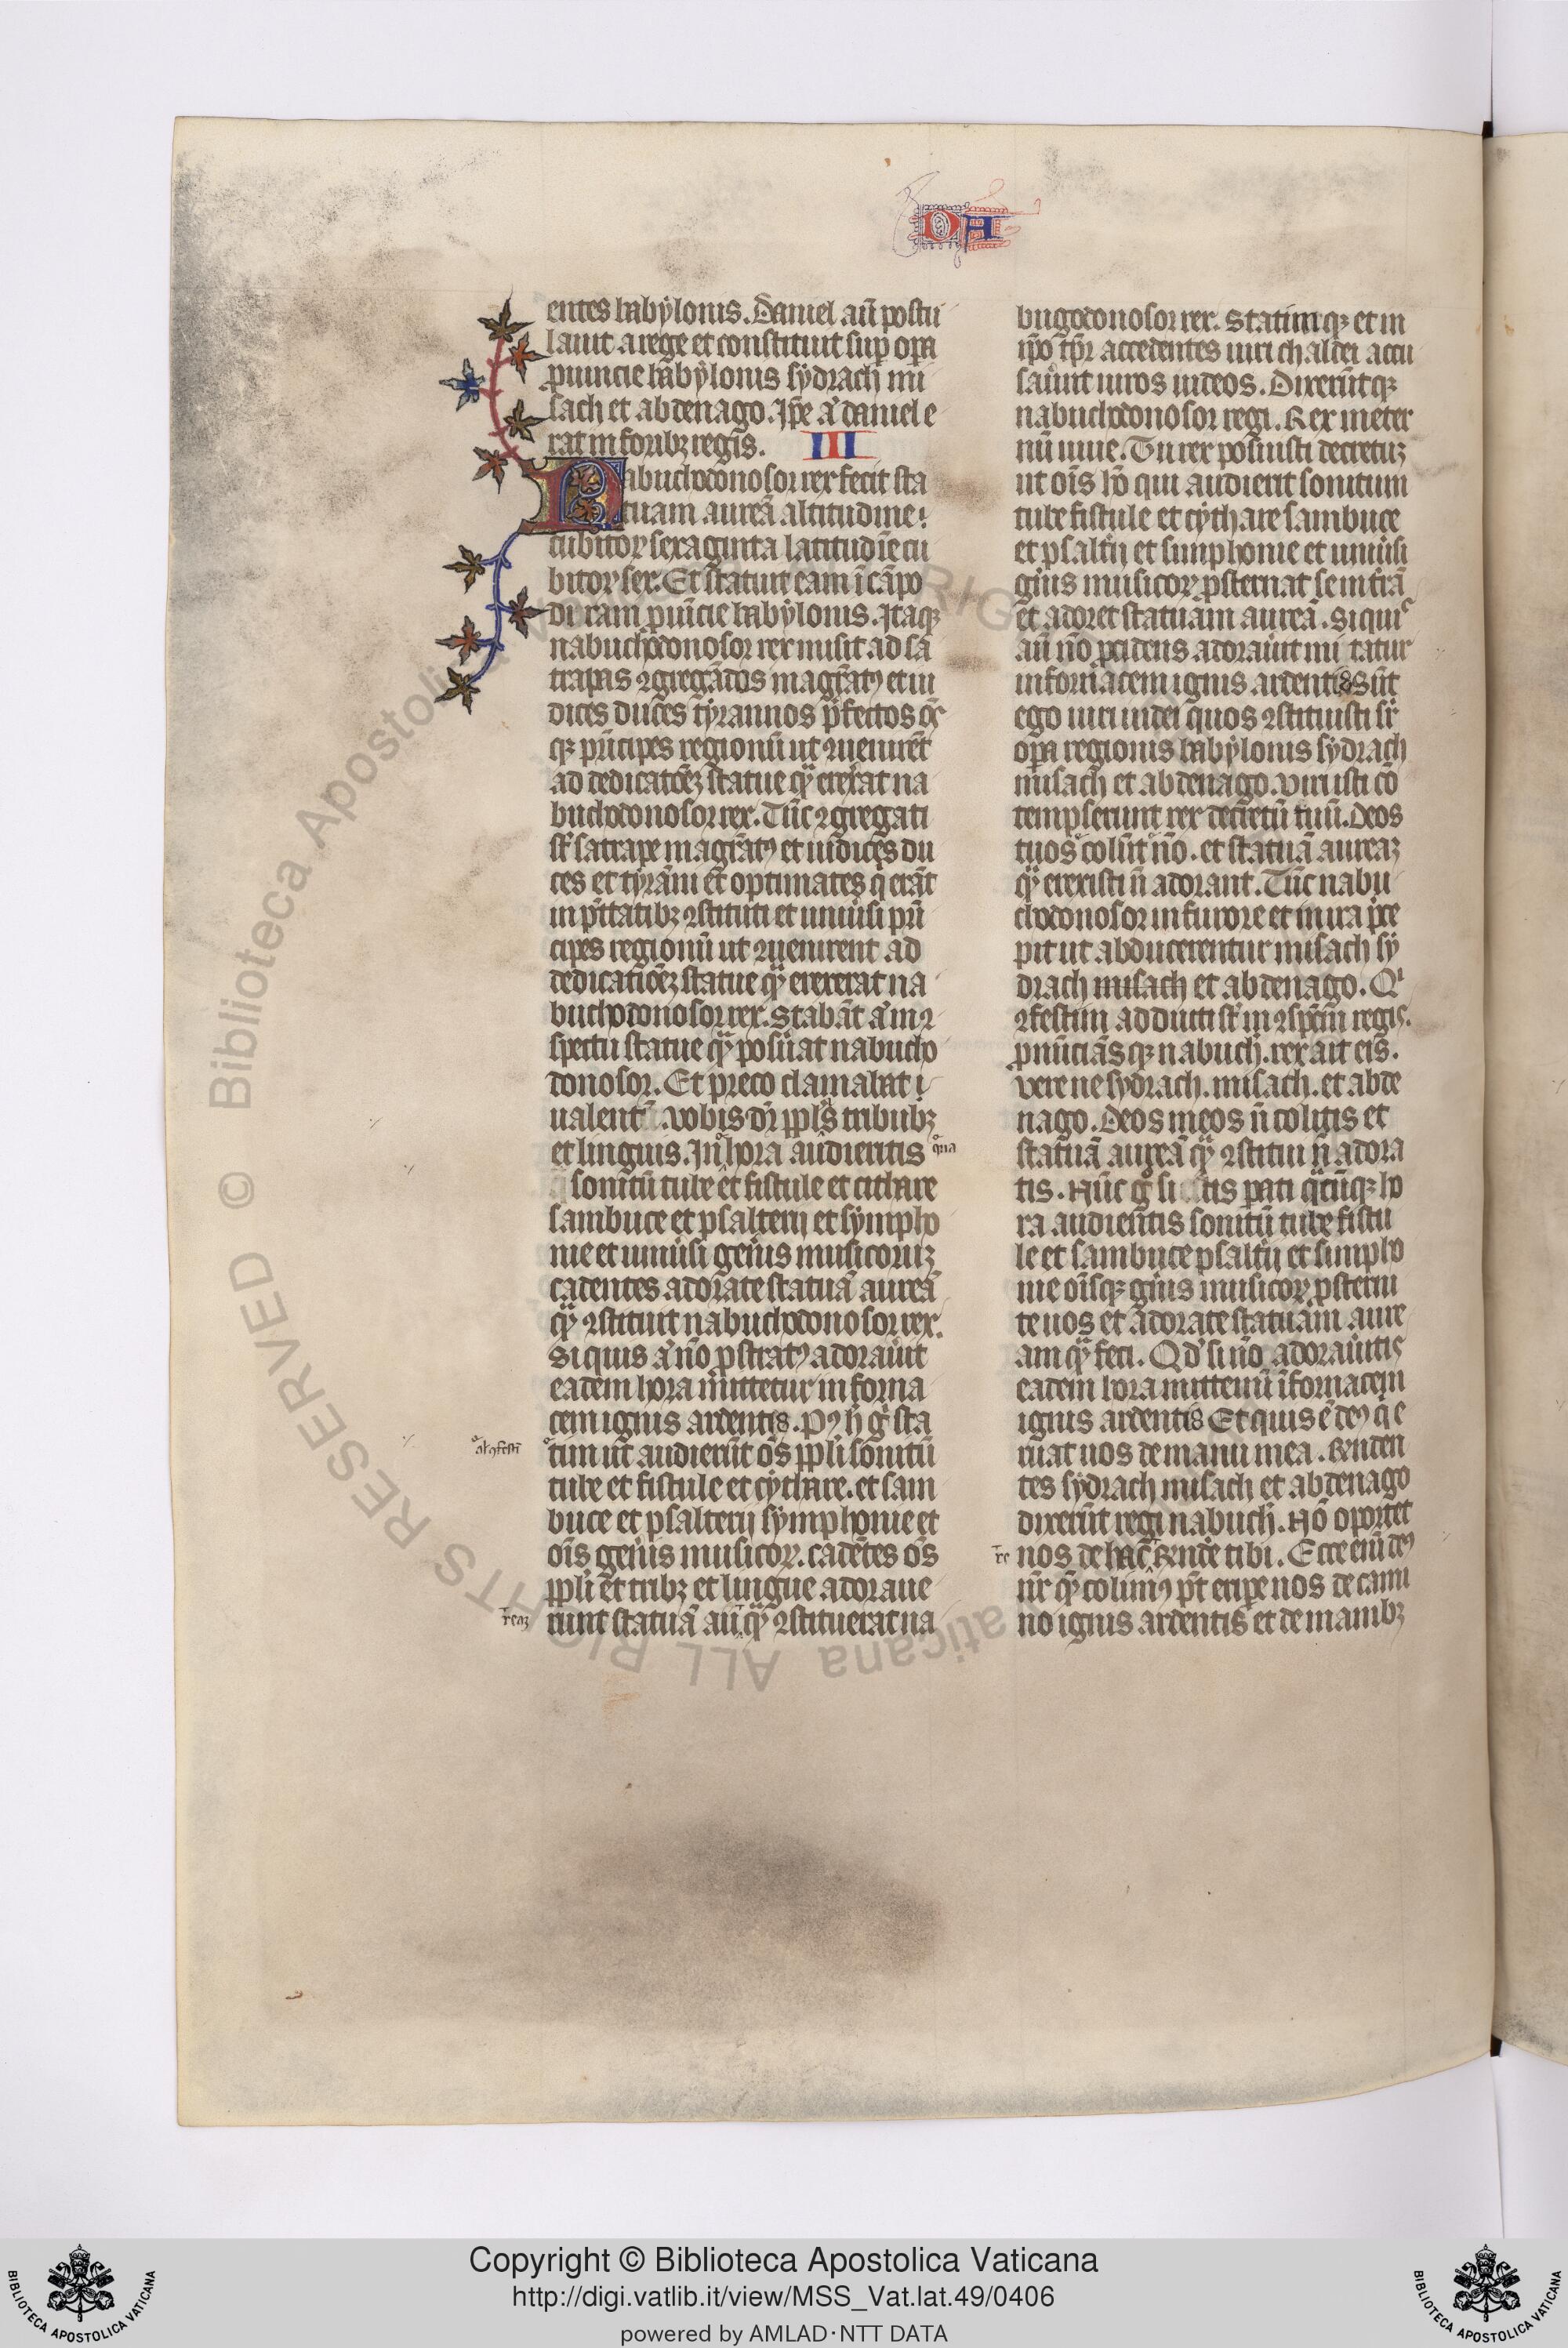 DA
entes babẏlonis. Daniel aū postu
lauit a rege et constituit sup̄ opa
ꝓuincie babẏlonis sẏdrach mi
sach et abdenago. Ip̄e aͥ daniel e
rat in foribꝫ regis.
III
Nabuchodonosor rex fecit sta
tuam aureā altitudine
cubitoꝝ sexaginta latitudīe cu
bitoꝝ sex. Et statuit eam ī cāpo
duram ꝓuīcie babẏlonis. Itaqꝫ
nabuchodonosor rex misit ad sa
trapas ꝯgregādos magr̄atꝰ et iu
dices duces tẏrannos p̄fectos
qꝫ pͥncipes regionū ut ꝯuenirēt
ad dedicatōeꝫ statue quā erexat na
buchodonosor rex. Tūc ꝯgregati
sūt satrape magr̄atꝰ et iudices du
ces et tẏrāni et optimates q̄ erāt
in ptātibꝫ ꝯstituti et uniūsi prī
cipes regionū ut ꝯuenirent ad
dedicatiōeꝫ statue quā erexerat na
buchodonosor rex. Stabāt aͥ in ꝯ
spectu statue quā posuat nabucho
donosor. Et preco clamabat
ualent. Vobis dr̄ ppl̄s tribubꝫ
et linguis. In hora audieritis
qͣna
sonitū tube et fistule et cithare
sambuce et psalterii et sẏmpho
nie et uniūsi geūis musicoruꝫ
cadentes adorate statuā aureā
quā ꝯstituit nabuchodonosor rex.
Si quis aͥ nō pstratꝰ adorauit
eadem hora mittetur in forna
cem ignis ardentis. Pꝰ h̄ gͦ sta
tim ut audierūt ōs ppl̄i sonitū
tube et fistule et cẏthare. et sam
buce et psalterii sẏmphonie et
oīs geūis musicoꝝ. cadētes ōs
ppl̄i et tribꝫ et lingue adoraue
reaꝫ
runt statuā au quā ꝯstituerat na
bugodonosor rex. Statimqꝫ et in
ip̄o tp̄r accedentes uiri chaldei accu
sauīt uiros iudeos. Dixerūtqꝫ
nabuchodonosor regi. Rex in eter
nū uiue. Tu rex posuisti decretuꝫ
ut oīs hō qui audierit sonitum
tube fistule et cẏthare sambuce
et psaltīi et simphonie et uniūsi
gn̄is musicoꝝ ꝓsternat se in trā
et adoret statuam aureā. Si quiͨ
aū nō ꝓcidens adorauit mi tatur
in fornacem ignis ardentis. Sūt
ego uiri iudei quos ꝯstituisti sr̄
opa regionis babẏlonis sẏdrach
misach et abdenago. Viri isti cō
tempserunt rex decretū tuū. Deos
tuos colūt nō. et statuā aureaꝫ
quā erexisti n̄ adorant. Tūc nabu
chodonosor in furore et in ira p̄ce
pit ut adducerentur misach sẏ
drach misach et abdenago. Qͥ
ꝯfestim adducti sūt in ꝯspc̄m regis.
ꝓnūciāsqꝫ nabuch. rex ait eis.
Vere ne sẏdrach. misach. et abde
nago. Deos meos n̄ colitis et
statuā aureā quā ꝯstitui n̄ adora
tis. Nūc gͦ si tis pati qͣcūqꝫ ho
ra audieritis sonitū tube fistu
le et sambuce psaltīi et simpho
nie oīsqꝫ gn̄is musicoꝝ ꝓsterni
te uos et adorate statuam aure
am quā feci. Qd̓ si nō adorauitis
eadem hora mittemī ī fornacem
ignis ardentis Et quis ē deꝰ q̄ e
ruat uos de manu mea. Rn̄den
tes sẏdrach misach et abdenago
dixerūt regi nabuch. Nō oportet
nos de hac re rn̄de tibi. Ecce eni deꝰ
nr̄ quē colimꝰ pt̄ eripe nos de cami
no ignis ardentis et de manibꝫ
© Biblioteca Apostolica Vaticana ALL RIGHTS RESERVED
Copyright © Biblioteca Apostolica Vaticana
http://digi.vatlib.it/view/MSS_Vat.lat.49/0406
powered by AMLAD·NTT DATA
BIBLIOTECA APOSTOLICA VATICANA
BIBLIOTECA APOSTOLICA VATICANA